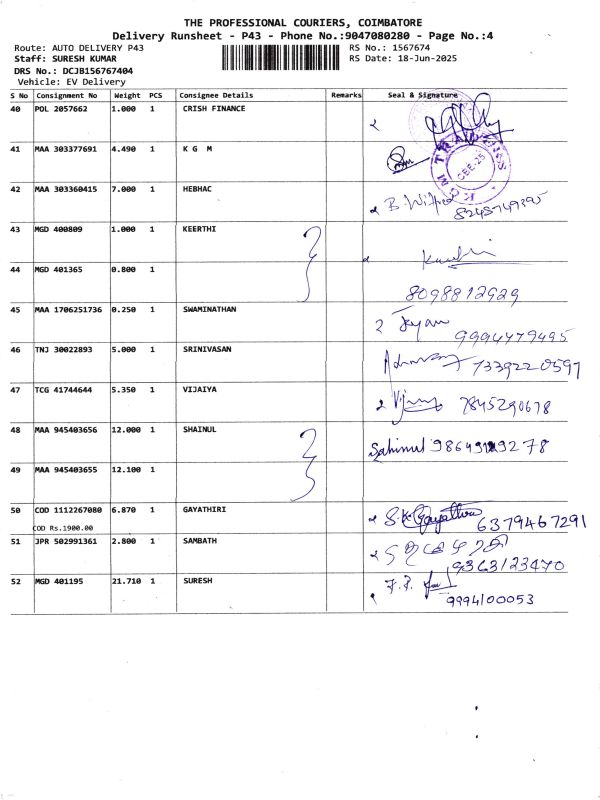 THE PROFESSIONAL COURIERS, COIMBATORE
Delivery Runsheet - P43 - Phone No.:9047080280 - Page No.:4
Route: AUTO DELIVERY P43 RS No.: 1567674
Staff: SURESH KUMAR RS Date: 18-Jun-2025
DRS No.: DCJB156767404
Vehicle: EV Delivery
S No Consignment No Weight PCS Consignee Details Remarks Seal & Signature
40 POL 2057662 1.000 1 CRISH FINANCE
41 MAA 303377691 4.490 1 K G M
KGM TRAVELSS
CBE-25
42 MAA 303360415 7.000 1 HEBHAC B. Wilfred
43 MGD 400809 1.000 1 KEERTHI
44 MGD 401365 0.800 1
8098812929
45 MAA 1706251736 0.250 1 SWAMINATHAN
9994479495
46 TNJ 30022893 5.000 1 SRINIVASAN 7339220597
47 TCG 41744644 5.350 1 VIJAIYA 7845290678
48 MAA 945403656 12.000 1 SHAINUL
49 MAA 945403655 12.100 1
50 COD 1112267080 6.870 1 GAYATHIRI S.K. Gayathri
6379467291
COD Rs.1900.00
51 JPR 502991361 2.800 1 SAMBATH
9363123470
52 MGD 401195 21.710 1 SURESH
9994100053